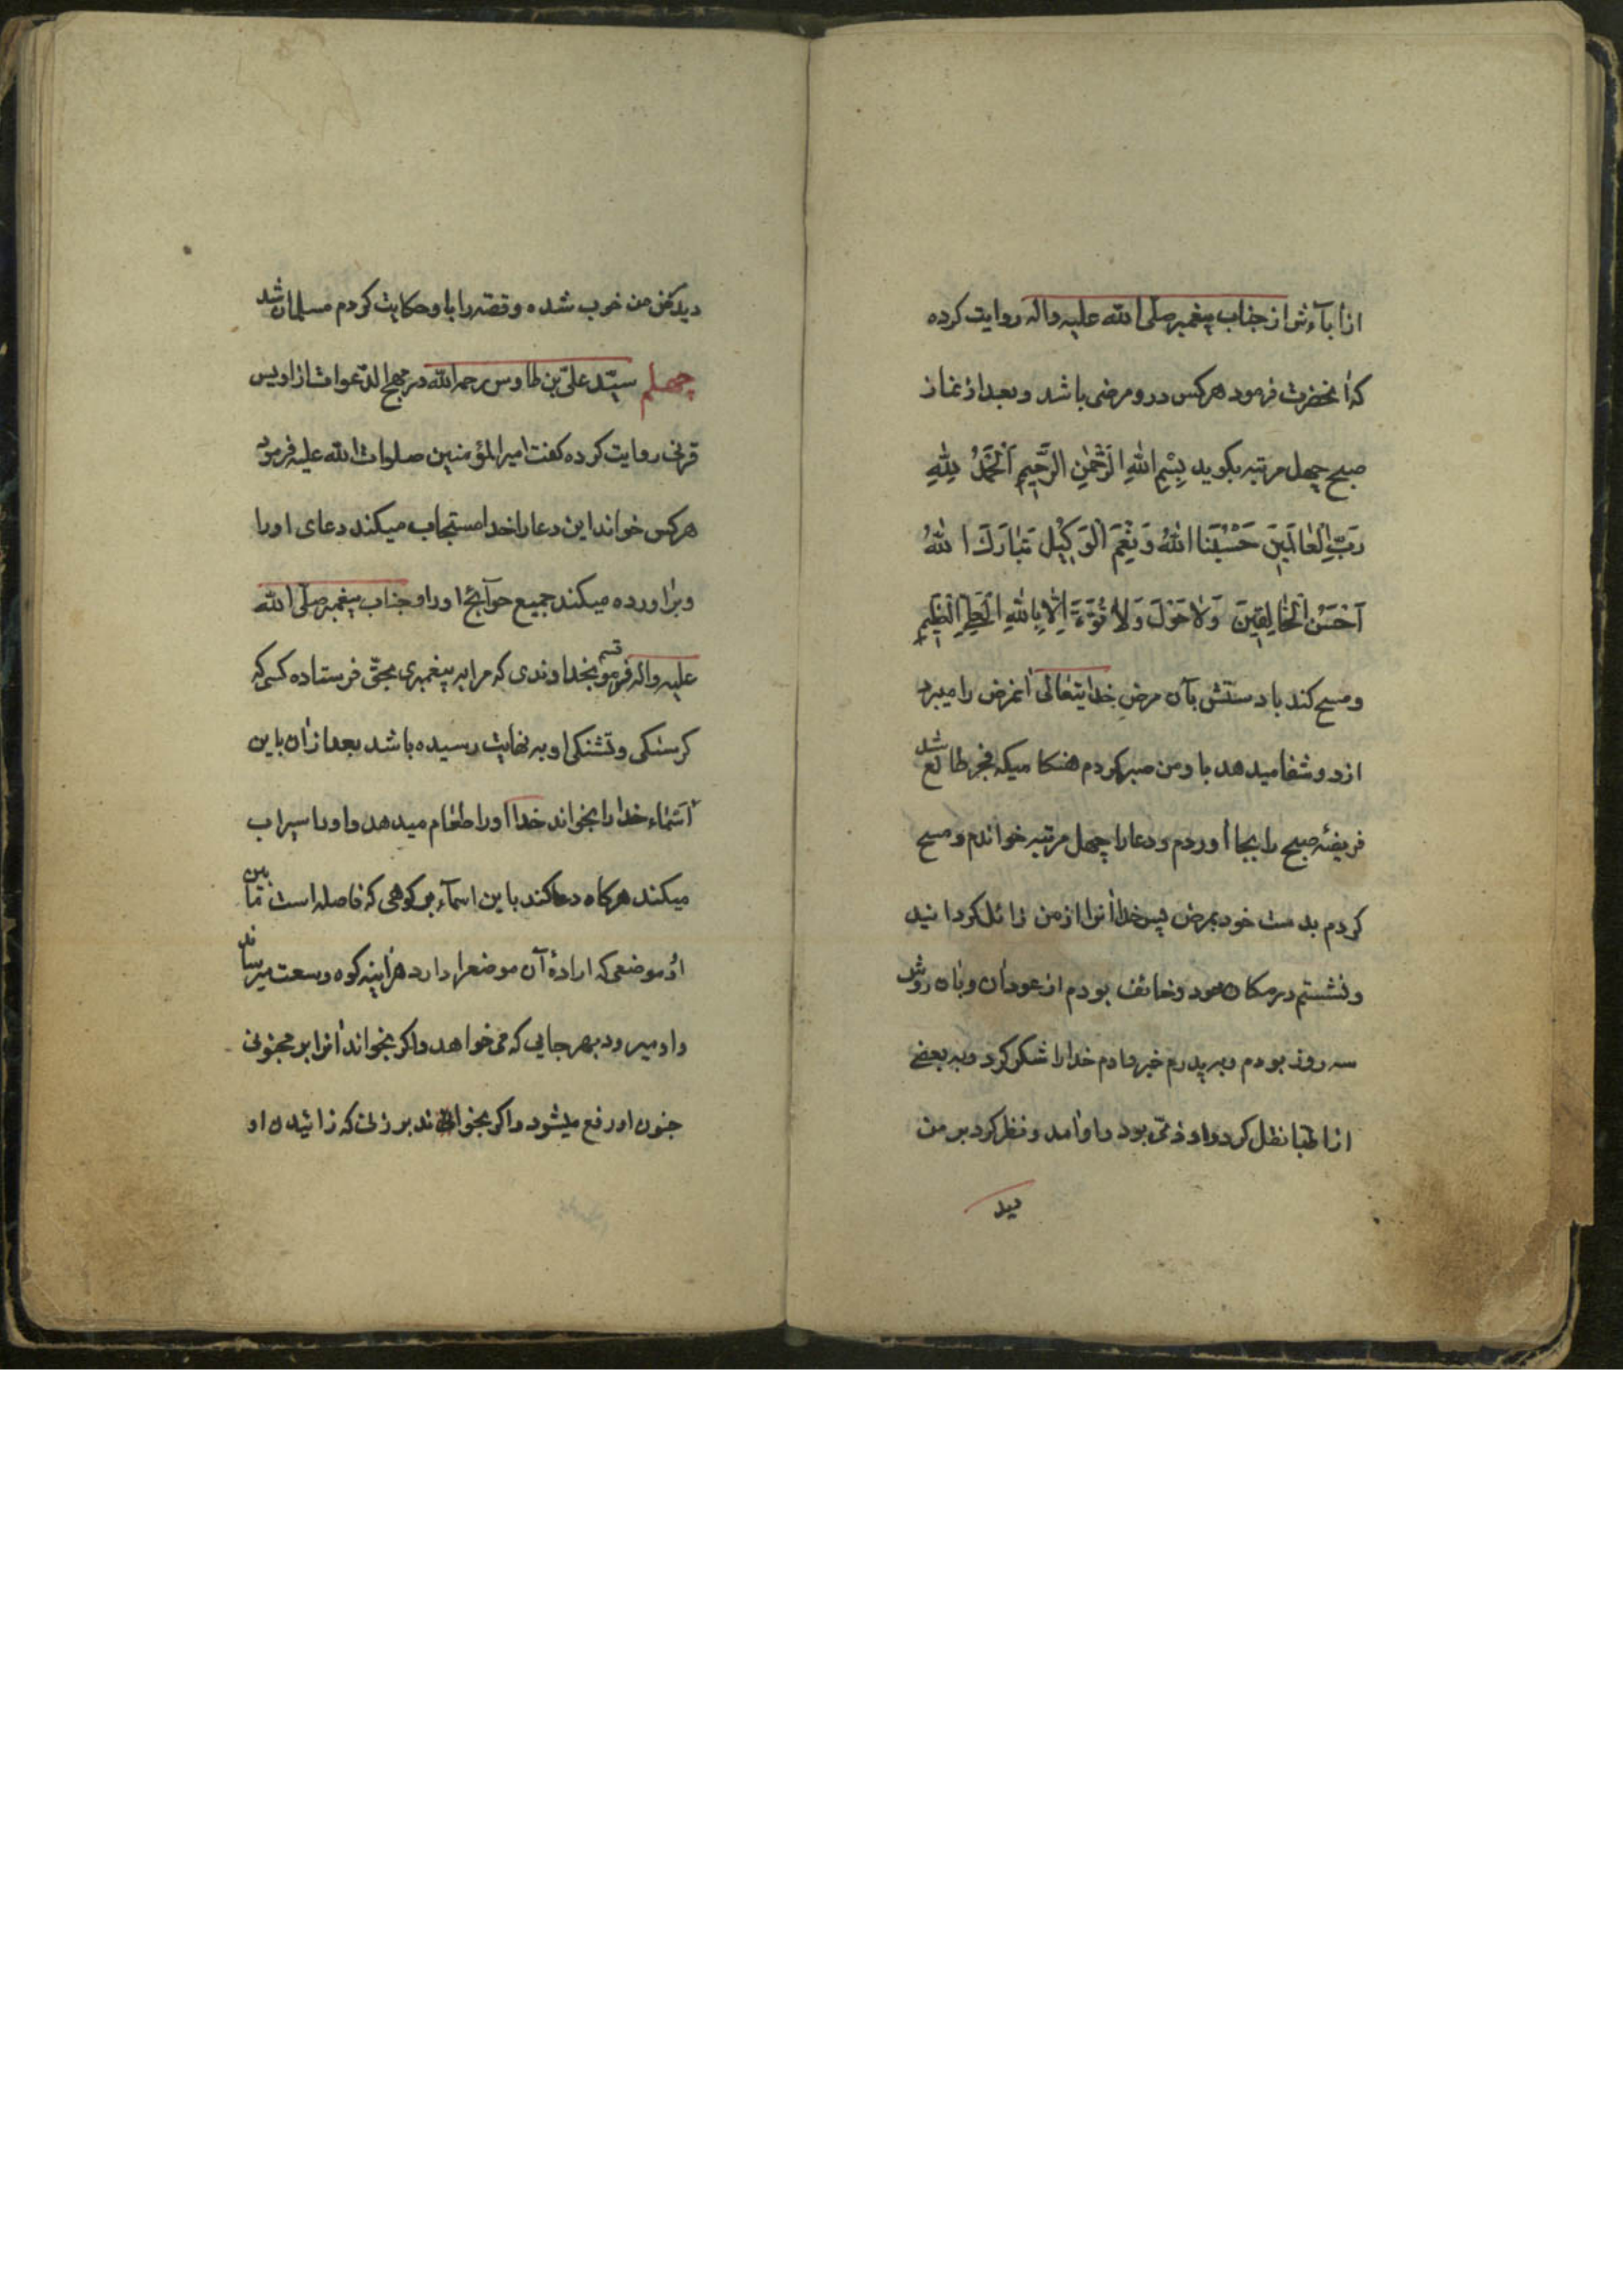 از آبآءش از جناب پیغمبر صلّی الله علیه واله روایت کرده
که آنحضرت فرمود هرکس درو مرضی باشد وبعد از نماز
صبح چهل مرتبه بکوید بِسْمِ اللهِ الرَّحْمٰنِ الرَّحِیمِ اَلْحَمْدُ لِلّهِ
رَبِّ الْعٰالَمِینَ حَسْبُنَا اللهُ وَنِعْمَ الْوَکِیْل تَبٰارَكَ اللهُ
اَحْسَنُ الْخٰالِقِینَ وَلٰا حَوْلَ وَلٰا قُوَّةَ اِلّٰا بِاللهِ الْعَلِیِّ الْعَظِیمِ
ومسح کند با دستش بآن مرض خدایتعٰالی آنمرض را میبرد
ازو وشفا میدهد باو من صبر کردم هنکامیکه فجر طالع شد
فریضهٔ صبح را بجا آوردم ودعا را چهل مرتبه خواندم ومسح
کردم بدست خود بمرض پس خدا آنرا از من زائل کردانید
ونشستم در مکان خود وخائف بودم از عود آن وبآن روش
سه روز بودم وبه پدرم خبر دادم خدا را شکر کرد وبه بعضی
از اطبا نقل کرد واو ذمّی بود واو آمد ونظر کرد بر من
دید
دید که من خوب شده وقصّه را باو حکایت کردم مسلمان شد
چهلم سیّد علیّ بن طاوس رحمه الله در مهج الدّعوات از اویس
قرنی روایت کرده کفت امیر المؤمنین صلوات الله علیه فرمود
هرکس خواند این دعا را خدا مستجاب میکند دعای اورا
وبرٰاورده میکند جمیع حوآئج اورا وجناب پیغمبر صلّی الله
علیه واله فرمود قسم بخداوندی که مرا به پیغمبری بحقّ فرستاده کسی که
کرسنکی وتشنکی او به نهایت رسیده باشد بعد ازان باین
اَسْمٰاء خدٰا را بخواند خدا اورا طعٰام میدهد واورا سیراب
میکند هرکاه دعا کند باین اسمآء بر کوهی که فاصله است مٰابین
او وموضعی که ارادهٔ آن موضعرا دارد هرٰاینه کوه وسعت میرساند
واو میرود بهر جایی که می خواهد واکر بخواند آنرا بر مجنونی
جنون او رفع میشود واکر بخوانند بر زنی که زائیدن او